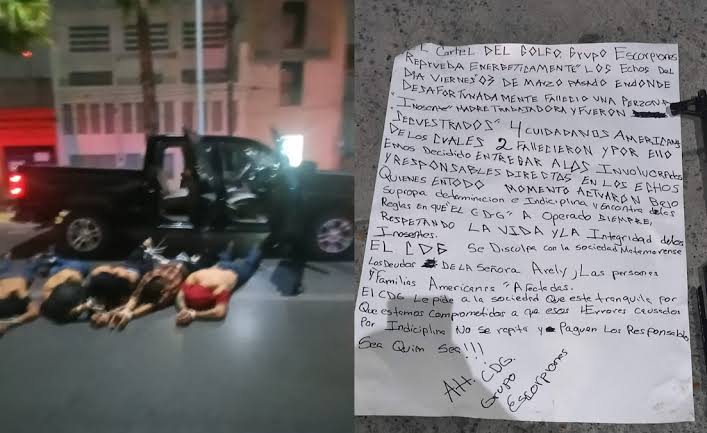 EL CARTEL DEL GOLFO, Grupo Escorpiones
REPRUEBA ENERGETICAMENTE" LOS Echos DEl
DIA VIERNES'03 DE MARZO PASADO EN DONDE
DESAFORTUNADAMENTE FALLECIO UNA PERZONA
"INOSENTE" MADRE TRABAJADORA Y FUERON
SECUESTRADOS" 4 CUIDADANOS AMERICANS
DE LOS CUALES 2 FALLECIERON Y POR EllO
Emos Decidido ENTREGAR A LOS INVOLUCRADOS
Y RESPONSABLES DIRECTOS EN LOS ECHOS
QUIENES EN TODO MOMENTO ACTUARON BAJO
SU propia determinacion e Indiciplina y Encontra de las
Reglas EN QUE EL CDG" A Operado SIEMPRE,
RESPETANDO LA VIDA Y LA Integridad delos
Inosentes.
EL CDG Se Disculpa con la sociedad Matamorense
Los Deudos DE LA SEÑORA Arely y Las personas
y Familias Americanas "Afectadas.
El CDG le pide a la sociedad Que este tranquila por
Que estamos comprometidos a que esos "Errores causados
Por Indiciplina No se repita y Paguen Los Responsables
Sea Quin Sea!!!
Att. CDG.
Grupo
Escorpiones